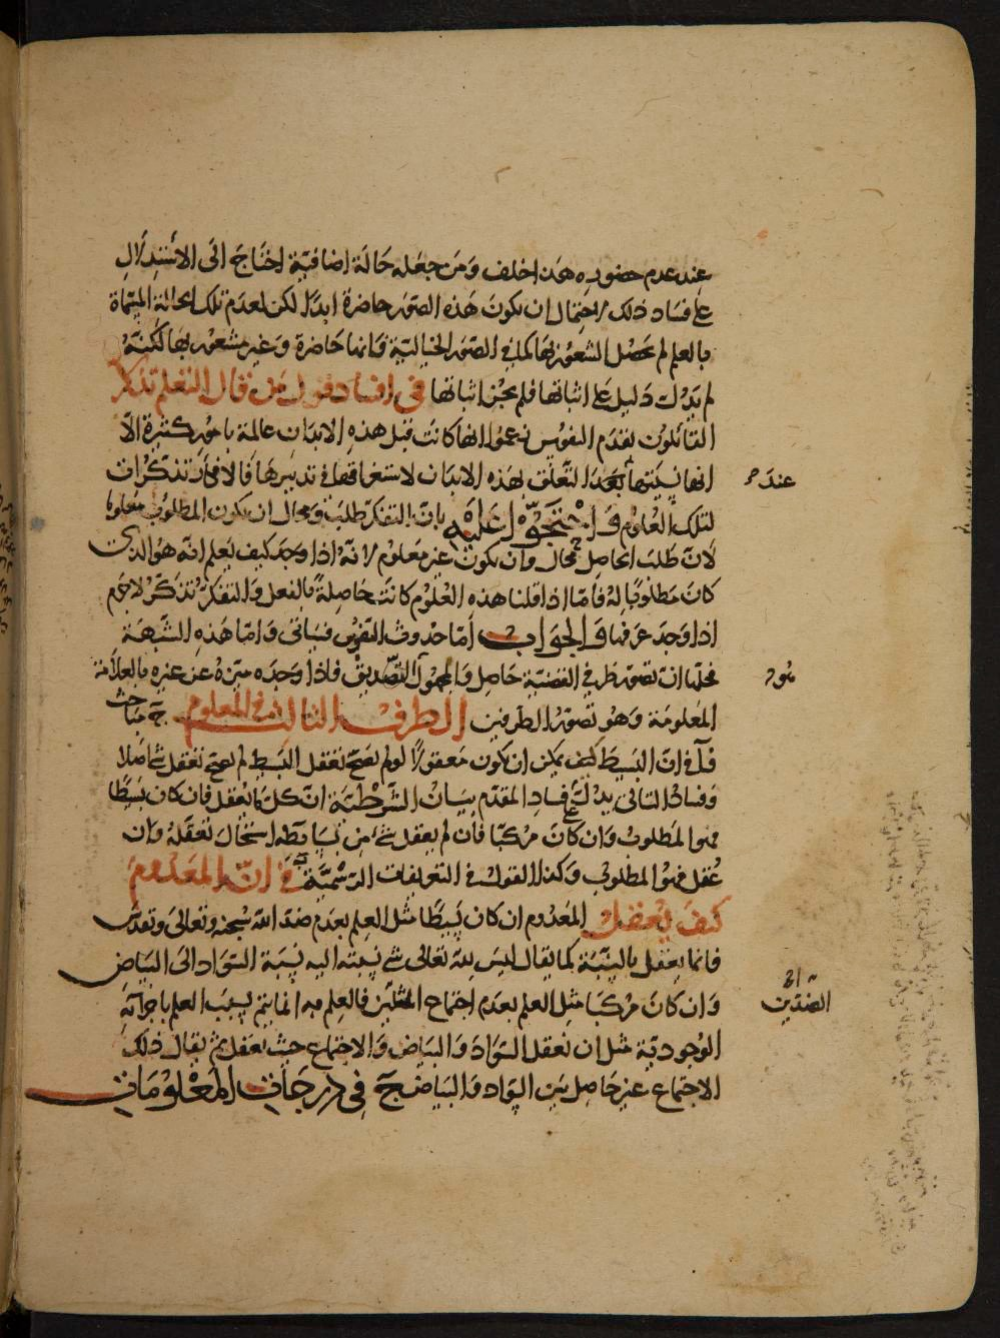 عند عدم حضوره هذا خلف ومن جعله حالة اضافية احتاج الى الاستدلال
على فساد ذلك لاحتمال ان يكون هذه الصور حاضرة ابدا لكن لعدم تلك الحالة المسماة
بالعلم لم يحصل الشعور بها كما في الصور الخيالية فانها حاضرة وغير مشعور بها لكنه
لم يدل دليل على اثباتها فلم يجز اثباتها في افساد قول من قال التعلم تذكر
القائلون بقدم النفوس زعموا انها كانت قبل هذه الابدان عالمة بامور كثيرة الا
انها نسيتها بعد التعلق بهذه الابدان لاستغراقها في تدبيرها فالافكار تذكرات
عند
لتلك العلوم واحتجوا عليه بان التفكر طلب ومحال ان يكون المطلوب معلوما
لان طلب الحاصل محال وان يكون غير معلوم لانه اذا وجد كيف يعلم انه هو الذي
كان مطلوبا له فاما اذا قلنا هذه العلوم كانت حاصلة بالفعل والتفكر تذكر لا جرم
اذا وجد عرفنا والجواب اما حدوث النفوس فسياتي واما هذه الشبهة
فحلها ان تصور طرفي القضية حاصل والمجهول التصديق فاذا وجده ميزه عن غيره بالعلامة
المعلومة وهو تصور الطرفين الطرف الثالث في المعلوم مباحث
في ان البسيط كيف يمكن ان يكون معقولا لو لم يصح تعقل البسيط لم يصح تعقل شيء اصلا
وفساد التالي يدل على فساد المقدم بيان الشرطية ان كل ما يعقل فان كان بسيطا
فهو المطلوب وان كان مركبا فان لم يعقل شيء من بسايطه استحال تعقله وان
عقل فهو المطلوب وكذا القول في التعريفات الرسمية في ان المعدوم
كيف يعقل المعدوم ان كان بسيطا مثل العلم بعدم ضد الله سبحانه وتعالى وتقدس
فانما يعقل بالنسبة كما يقال ليس لله تعالى شيء نسبته اليه نسبة السواد الى البياض
وان كان مركبا مثل العلم بعدم اجتماع المثلين فالعلم به انما يتم بسبب العلم باجزائه
الضدين
الوجودية مثل ان نعقل السواد والبياض والاجتماع حيث نعقل ثم يقال ذلك
الاجتماع غير حاصل بين السواد والبياض في درجات المعلومات